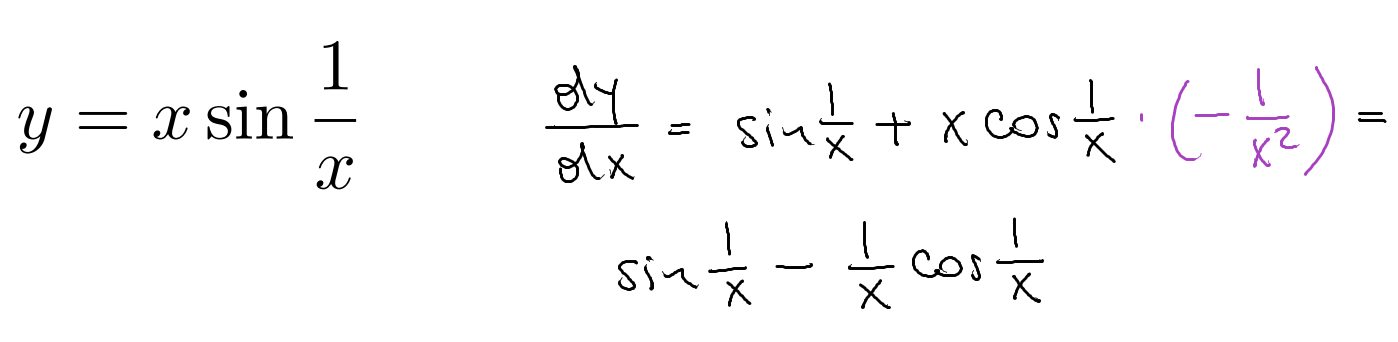 $y = x \sin \frac{1}{x}$
$\frac{dy}{dx} = \sin \frac{1}{x} + x \cos \frac{1}{x} \cdot \left(-\frac{1}{x^2}\right) =$
$\sin \frac{1}{x} - \frac{1}{x} \cos \frac{1}{x}$